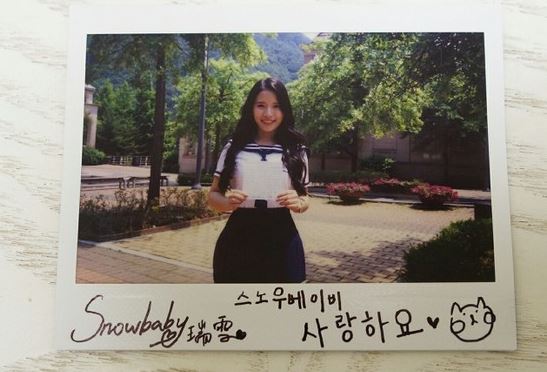 스노우베이비
Snowbaby 瑞雪 사랑하요